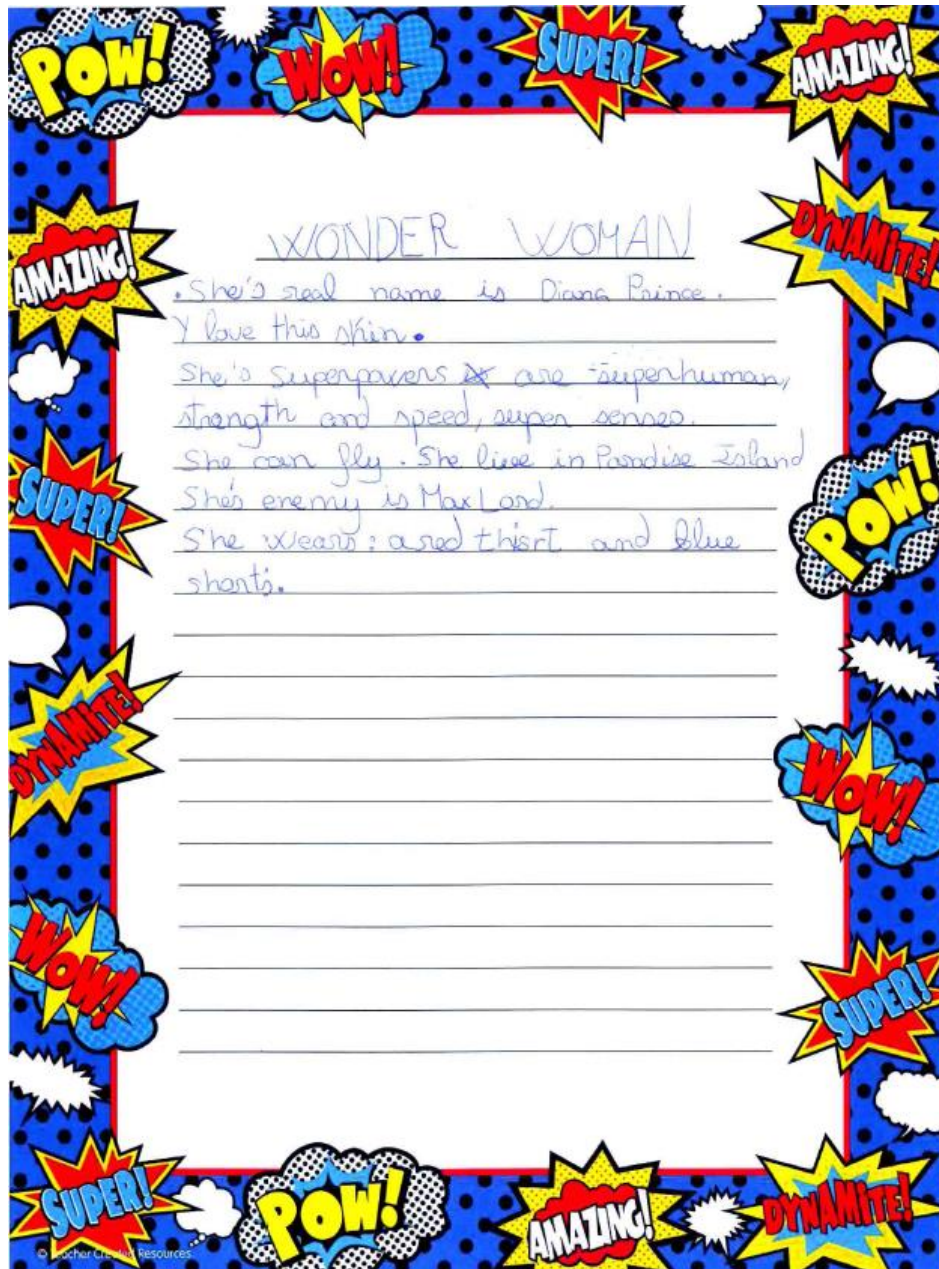 POW!
WOW!
SUPER!
AMAZING!
AMAZING!
DYNAMITE!
WONDER WOMAN
. She's real name is Diana Prince.
Y love this skin.
She's Superpowers are superhuman,
strength and speed, super senses.
She can fly. She live in Paradise Island
She's enemy is Max Lord.
She wears: a red thisrt and blue
short's.
SUPER!
POW!
DYNAMITE!
WOW!
WOW!
SUPER!
SUPER!
POW!
AMAZING!
DYNAMITE!
© Teacher Created Resources